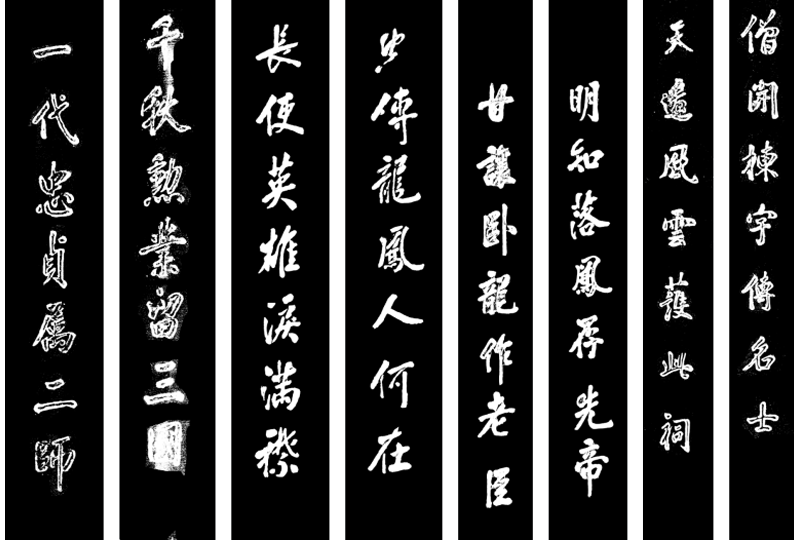 僧開棟宇傳名士
天遣風雲護此祠
明知落鳳存先帝
甘讓卧龍作老臣
傳龍鳳人何在
長使英雄淚滿襟
千秋勲業留三國
一代忠貞二師